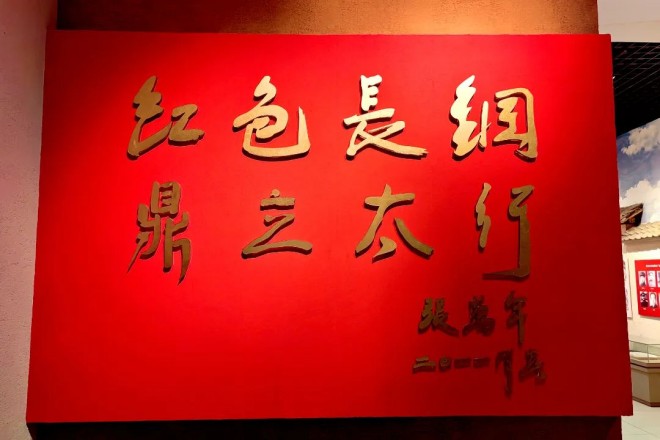 红色長鋼
鼎立太行
張萬年
二〇一一年